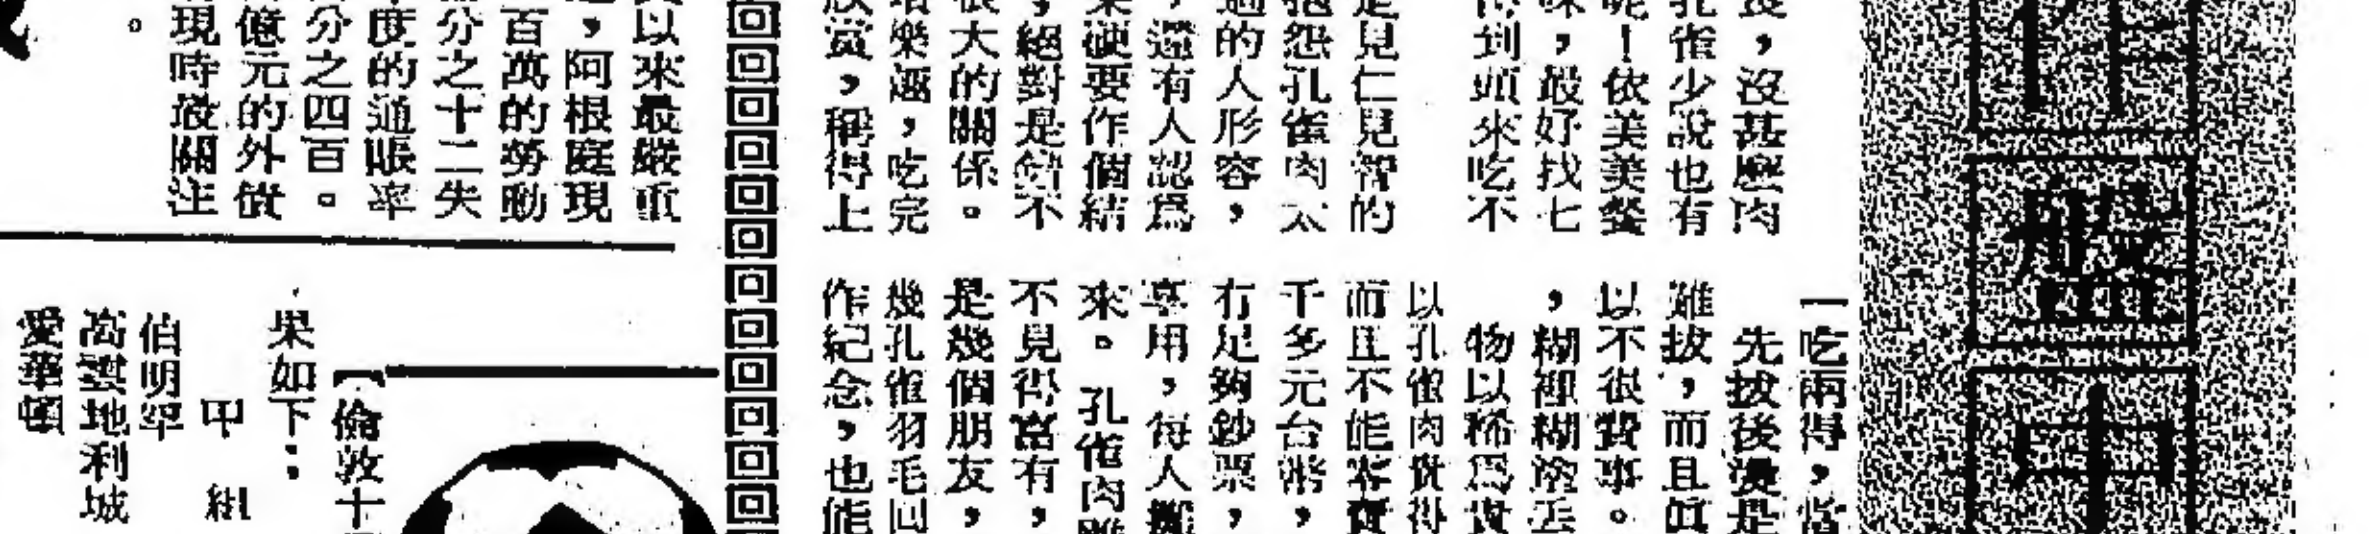 盤中
長，沒甚麼肉
孔雀少說也有
呢！依美美餐
味，最好找七
得到頭來吃不
是見仁見智的
抱怨孔雀肉太
過的人形容，
，還有人認爲
果硬要作個結
，絕對是錯不
很大的關係。
樂趣，吃完
欣賞，稱得上
一吃兩得，當
先拔後燙是
難拔，而且眞
以不很費事。
，糊裡糊塗丟
物以稀爲貴
以孔雀肉貴得
而且不能零賣
千多元台幣，
有足夠鈔票，
享用，每人攤
來。孔雀肉雖
不見得富有，
是幾個朋友，
幾孔雀羽毛回
作紀念，也能
以來最嚴重
，阿根庭現
百萬的勞動
分之十二失
年度的通賬率
分之四百。
億元的外債
現時最關注
。
【倫敦十
果如下：
甲 組
伯明罕
高雲地利城
愛華頓